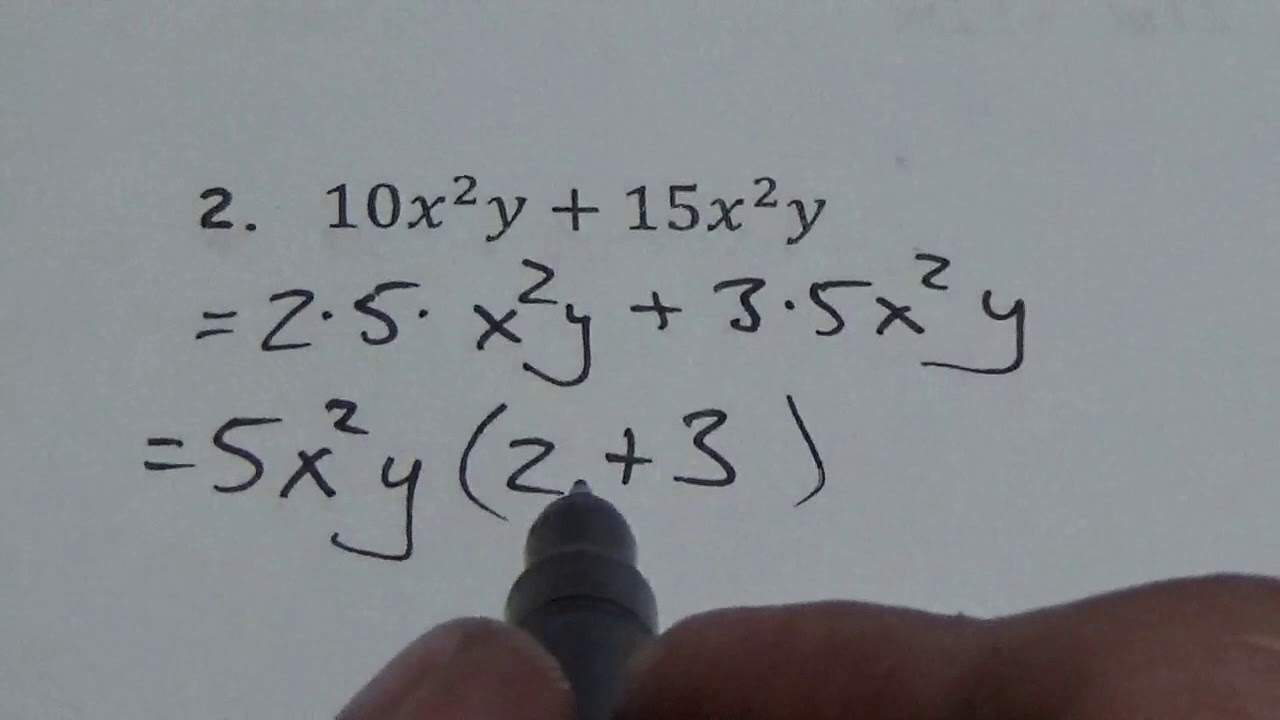 2. 10x²y + 15x²y
= 2·5· x²y + 3·5x²y
= 5x²y (2 + 3)